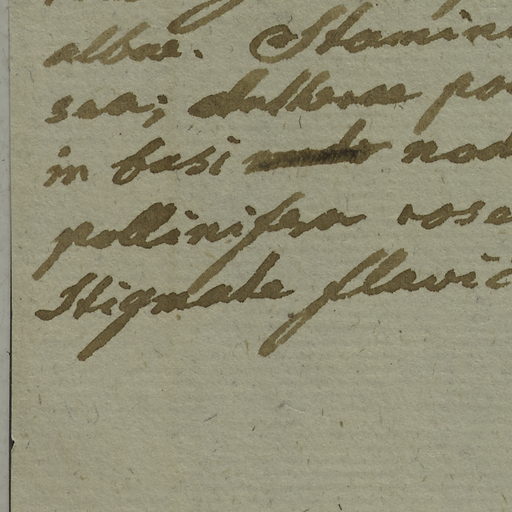 albae. Stamin
sea; Antherae po
in basi nod
pollinifera rose
Stigmate flavi